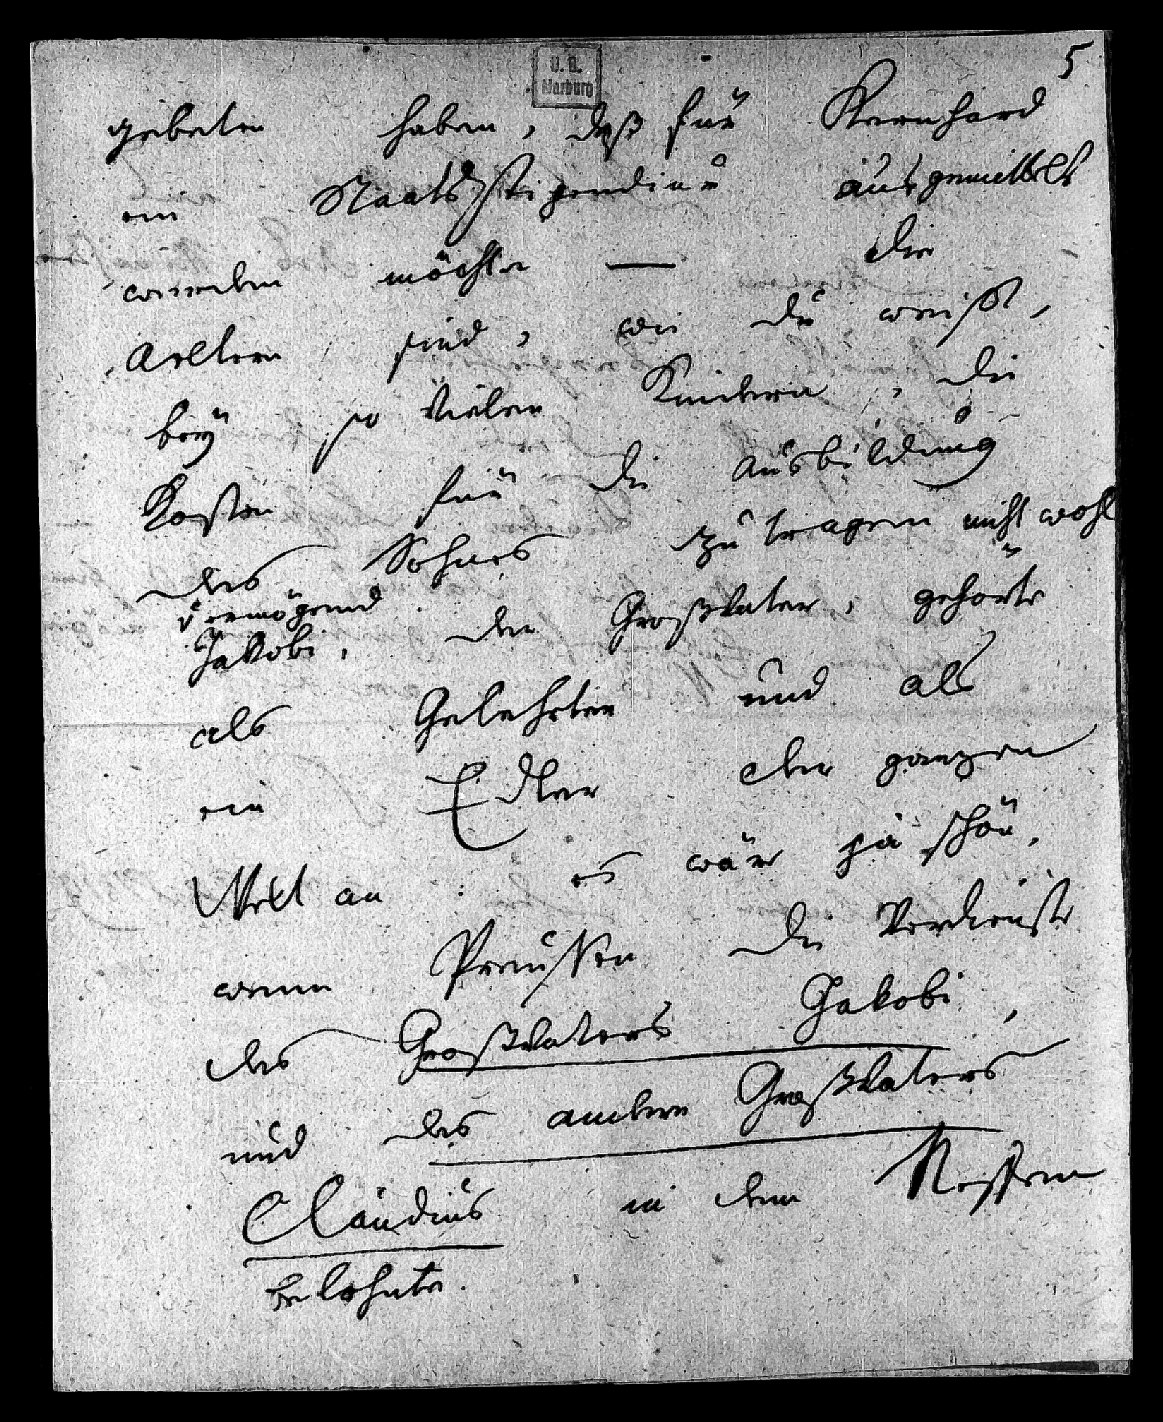 5
U. B.
Marburg
gebeten haben, daß für Bernhard
ein Staatsstipendium ausgemittelt
werden möchte — die
Aeltern sind, wie du weißt,
bey so vielen Kindern, die
Kosten für die Ausbildung
des Sohnes zu tragen nicht wohl
vermögend
Jakobi, der Großvater, gehörte
als Gelehrter und als
ein Edler der ganzen
Welt an : es wäre ja schön,
wenn Preußen die Verdienste
des Großvaters Jakobi,
und des andern Großvaters
Claudius in dem Neffen
belohnte.